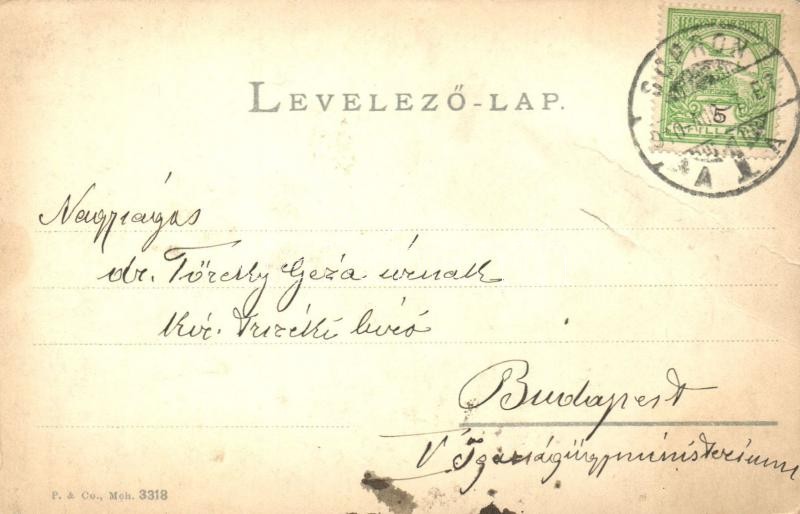 LEVELEZŐ-LAP.
MAGYAR KIR. POSTA
SOPRON
5
Nagyságos
dr. Töreky Géza úrnak
kir. biró
Budapest
V Igazságügyministerium
P. & Co., Mch. 3318